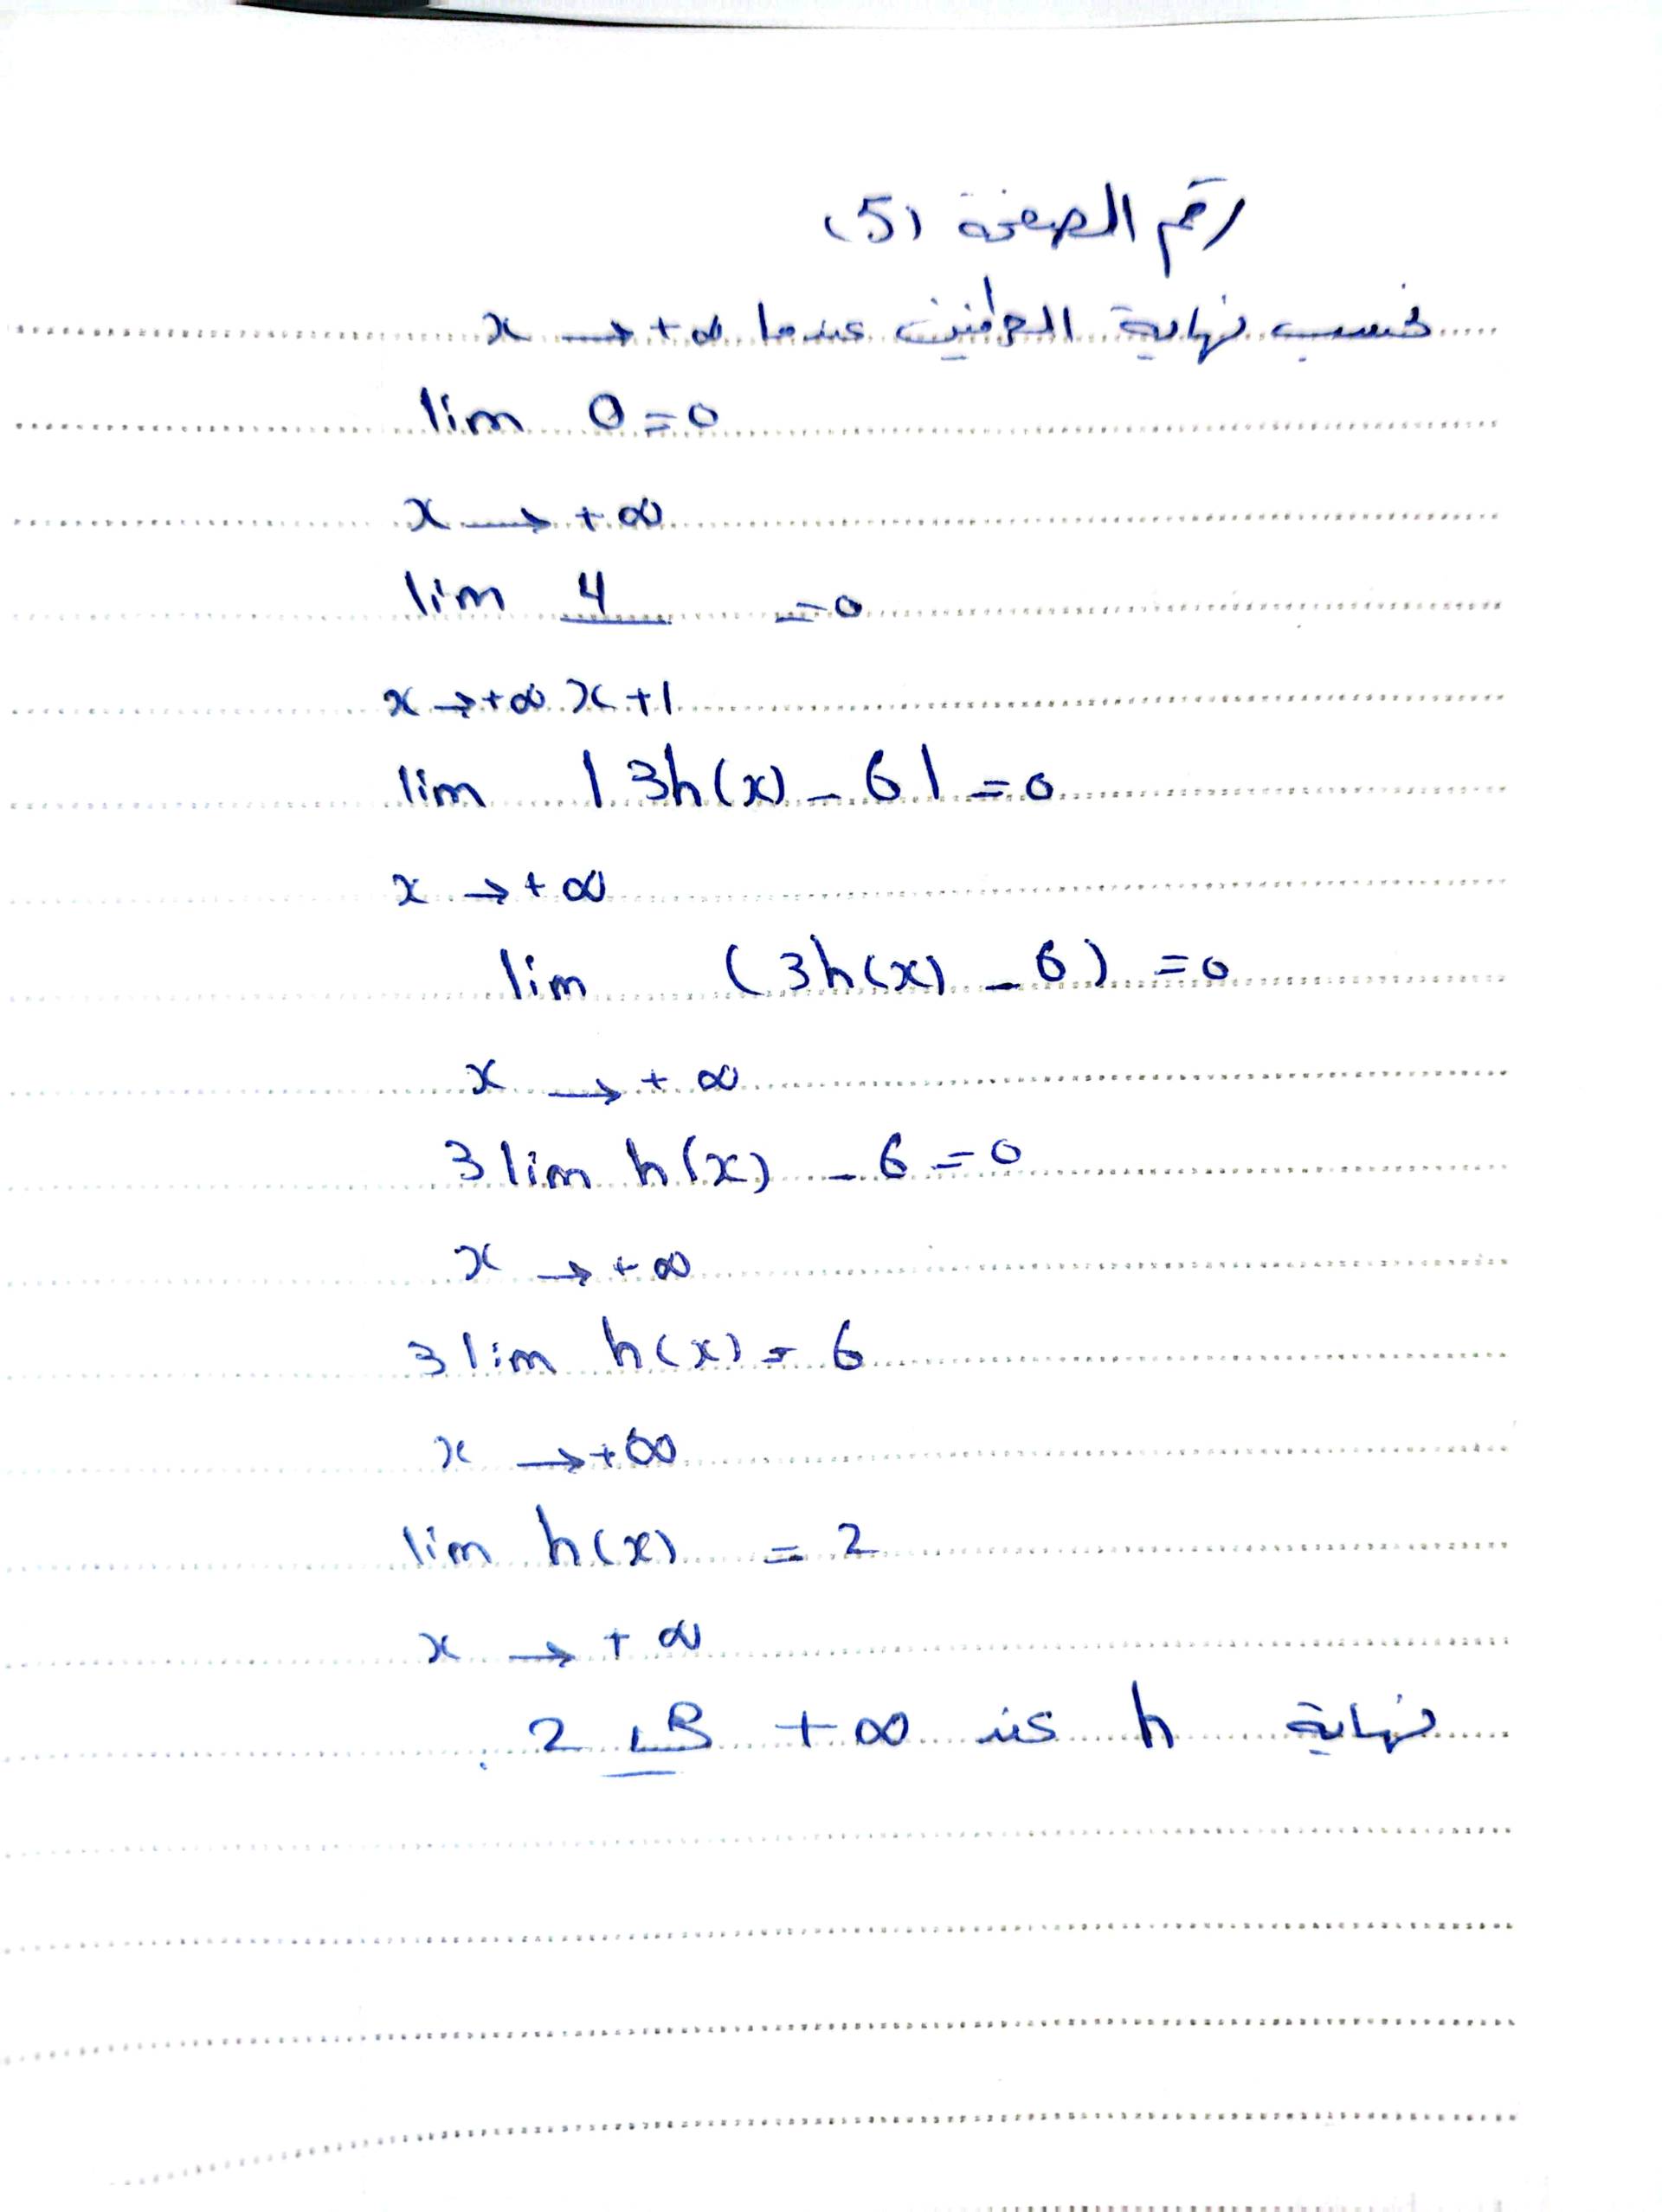 رقم الصفحة (5)
نحسب نهاية الطرفين عندما x → +∞
lim 0 = 0
x → +∞
lim 4 = 0
x → +∞ x + 1
lim | 3h(x) - 6 | = 0
x → +∞
lim ( 3h(x) - 6 ) = 0
x → +∞
3 lim h(x) - 6 = 0
x → +∞
3 lim h(x) = 6
x → +∞
lim h(x) = 2
x → +∞
نهاية h عند +∞ هي 2 .